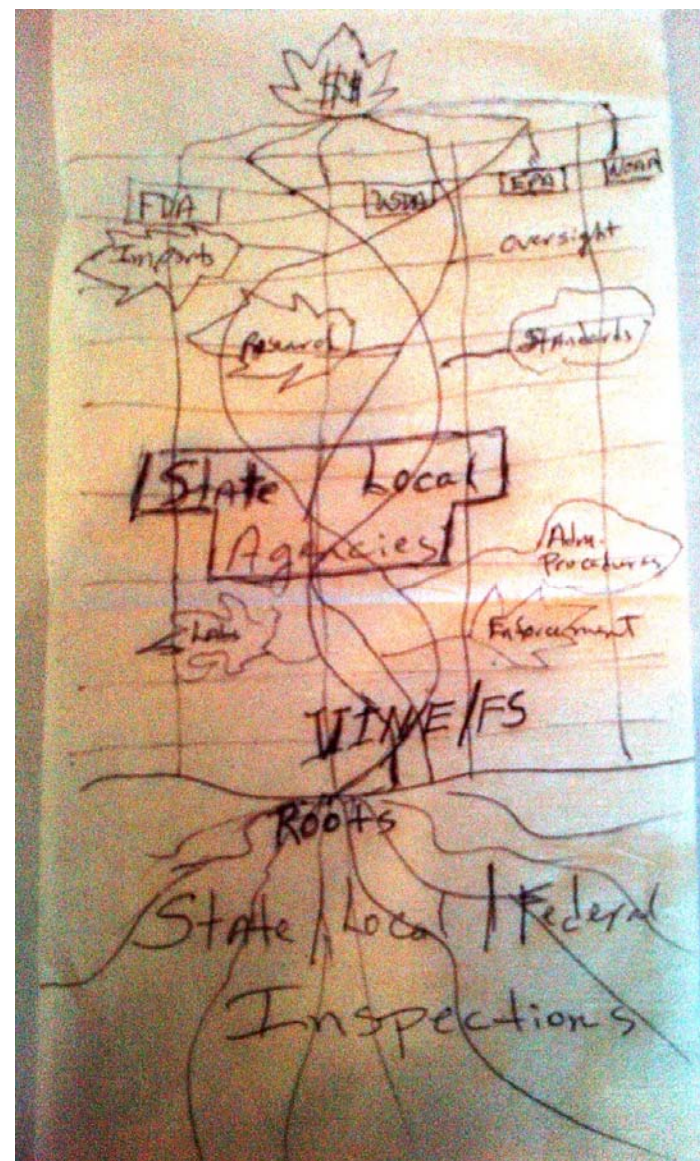 $$
FDA USDA EPA NOAA
Imports oversight
Research Standards
State Local
Agencies
Adm.
Procedures
Labs Enforcement
VINE/FS
Roots
State / Local / Federal
Inspections